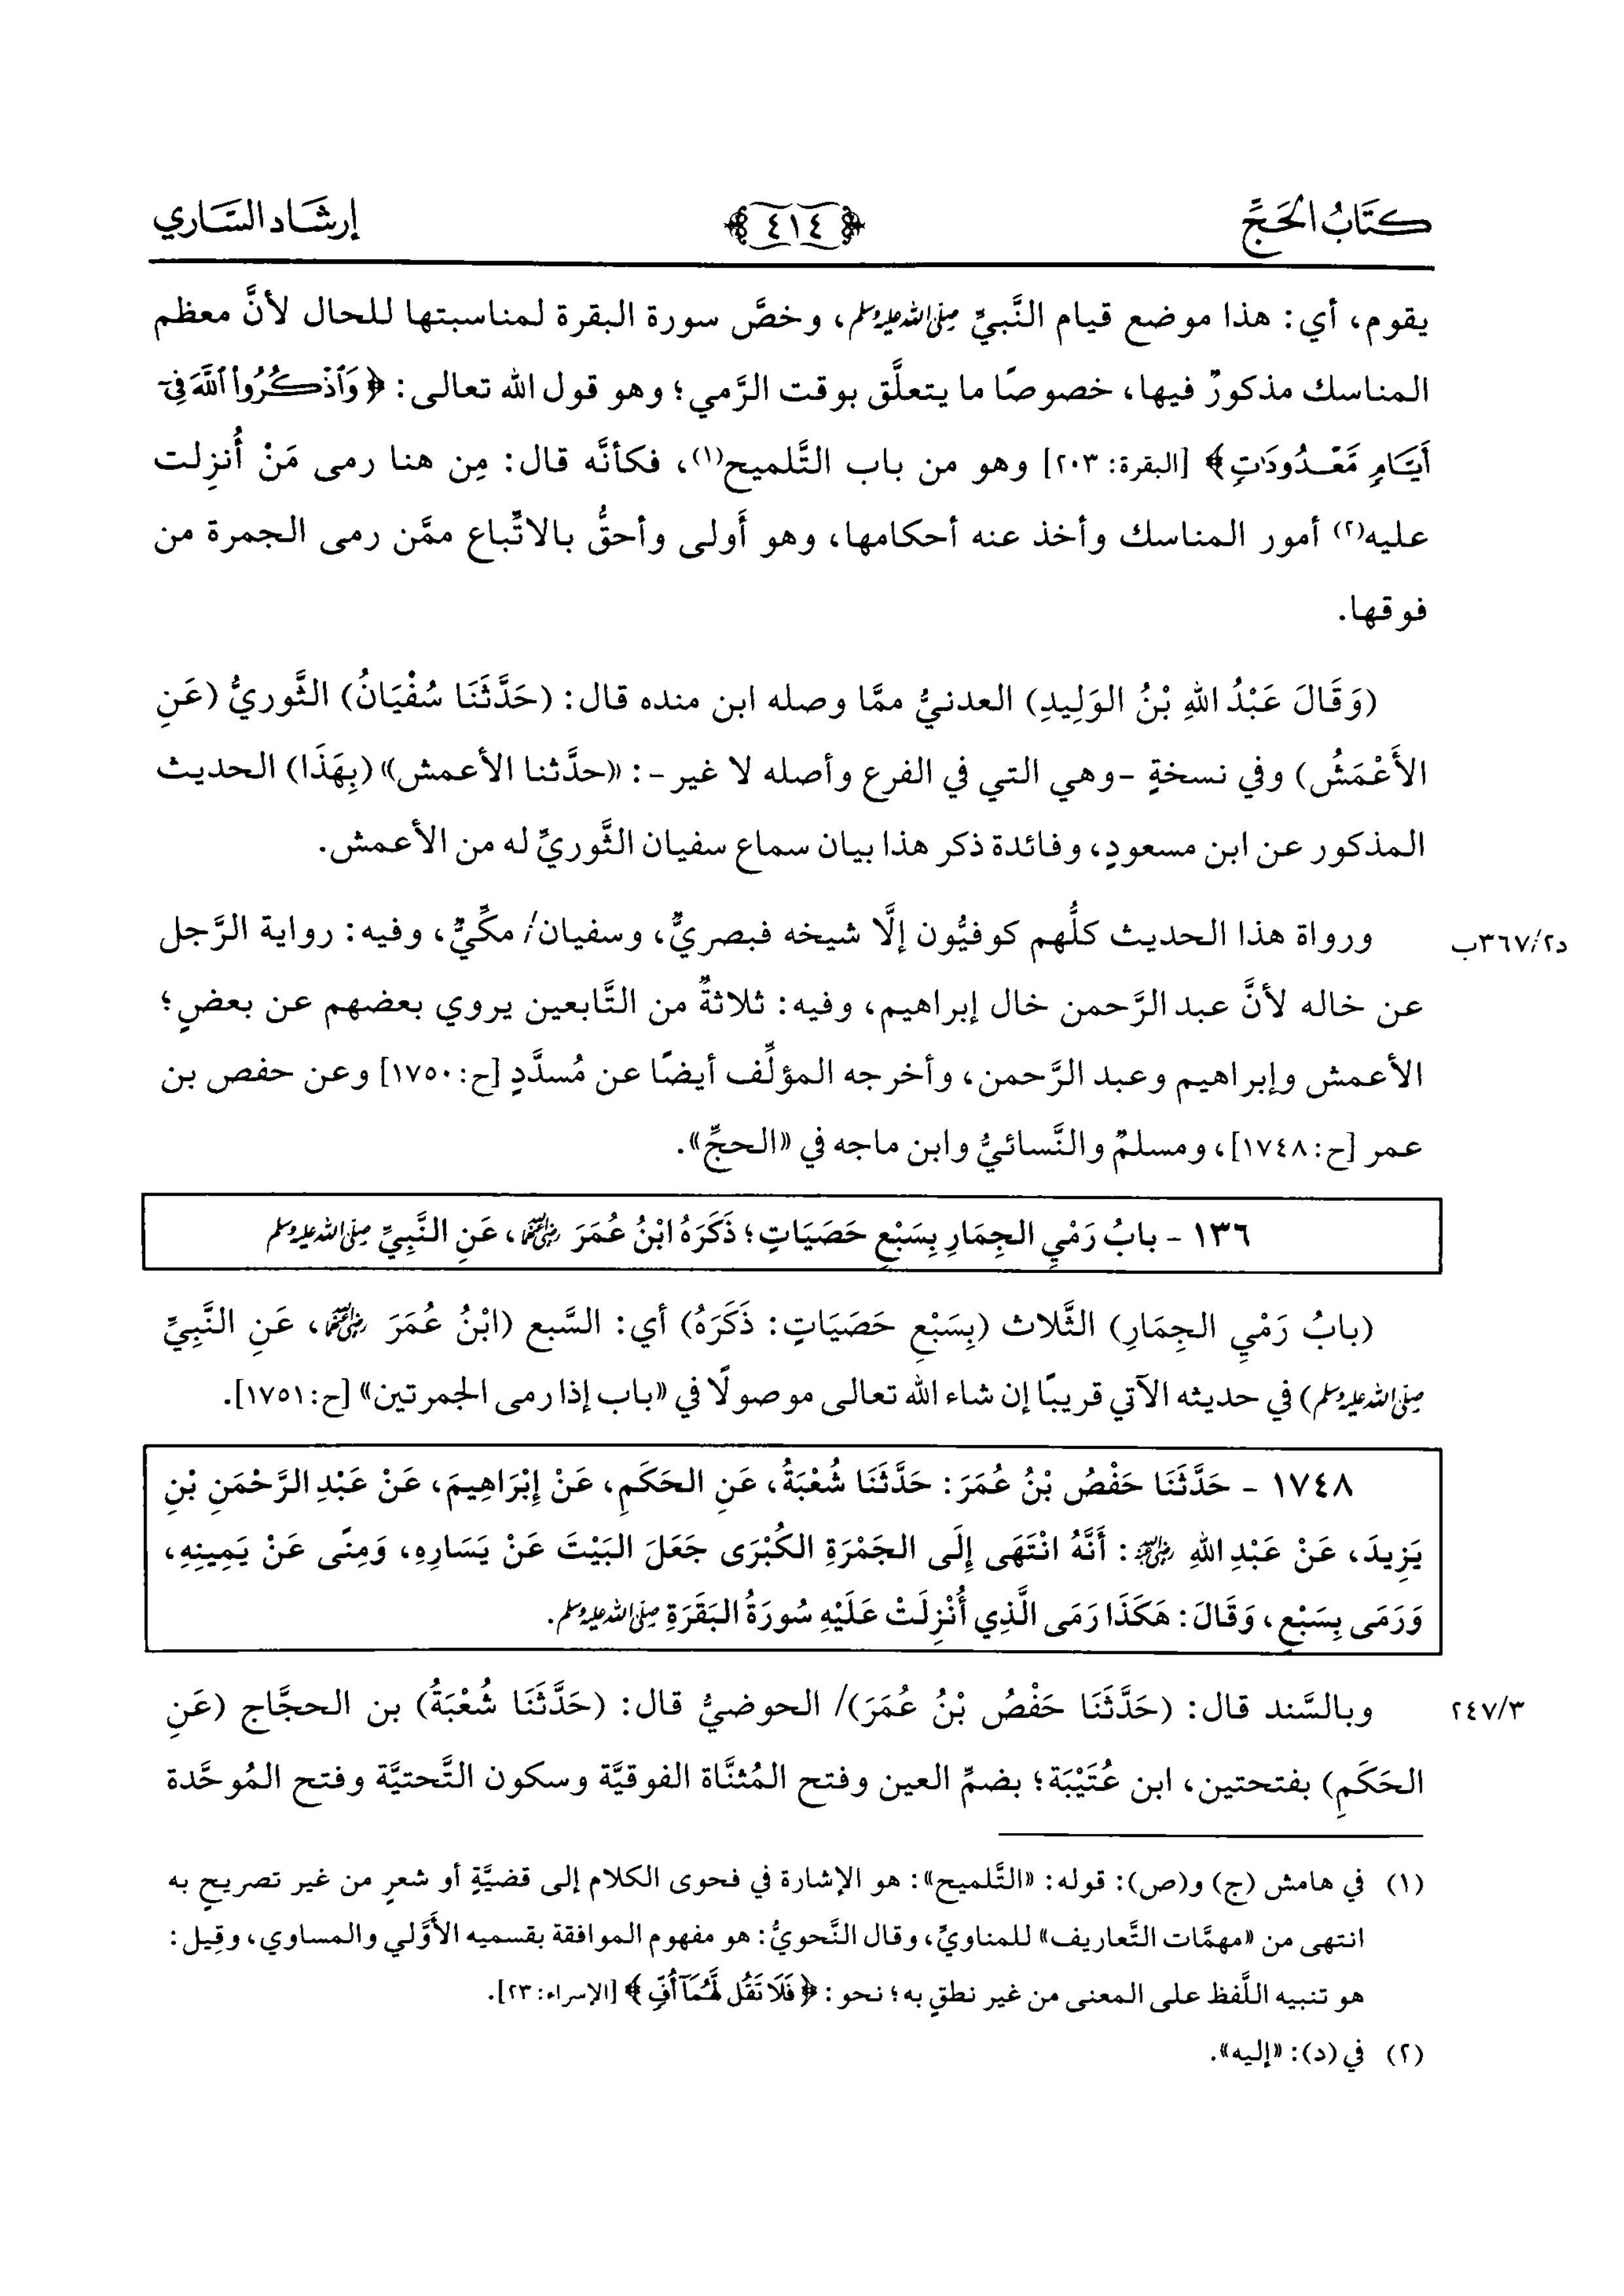 كتاب الحجّ
﴿٤١٤﴾
إرشاد السّاري
يقوم، أي: هذا موضع قيام النَّبيِّ صلى الله عليه وسلم، وخصَّ سورة البقرة لمناسبتها للحال لأنَّ معظم
المناسك مذكورٌ فيها، خصوصًا ما يتعلَّق بوقت الرَّمي؛ وهو قول الله تعالى: ﴿وَٱذْكُرُواْ ٱللَّهَ فِىٓ
أَيَّامٍ مَّعْدُودَٰتٍ﴾ [البقرة: ٢٠٣] وهو من باب التَّلميح(١)، فكأنَّه قال: مِن هنا رمى مَنْ أُنزِلت
عليه(٢) أمور المناسك وأخذ عنه أحكامها، وهو أَولى وأحقُّ بالاتِّباع ممَّن رمى الجمرة من
فوقها.
(وَقَالَ عَبْدُ اللهِ بْنُ الوَلِيدِ) العدنيُّ ممَّا وصله ابن منده قال: (حَدَّثَنَا سُفْيَانُ) الثَّوريُّ (عَنِ
الأَعْمَشُ) وفي نسخةٍ -وهي التي في الفرع وأصله لا غير-: «حدَّثنا الأعمش» (بِهَذَا) الحديث
المذكور عن ابن مسعودٍ، وفائدة ذكر هذا بيان سماع سفيان الثَّوريِّ له من الأعمش.
ورواة هذا الحديث كلُّهم كوفيُّون إلَّا شيخه فبصريٌّ، وسفيان/ مكِّيٌّ، وفيه: رواية الرَّجل
د٢/٣٦٧ب
عن خاله لأنَّ عبد الرَّحمن خال إبراهيم، وفيه: ثلاثةٌ من التَّابعين يروي بعضهم عن بعضٍ؛
الأعمش وإبراهيم وعبد الرَّحمن، وأخرجه المؤلِّف أيضًا عن مُسدَّدٍ [ح: ١٧٥٠] وعن حفص بن
عمر [ح: ١٧٤٨]، ومسلمٌ والنَّسائيُّ وابن ماجه في «الحجِّ».
١٣٦ - بابُ رَمْيِ الجِمَارِ بِسَبْعِ حَصَيَاتٍ؛ ذَكَرَهُ ابْنُ عُمَرَ رضي الله عنهما، عَنِ النَّبِيِّ صلى الله عليه وسلم
(بابُ رَمْيِ الجِمَارِ) الثَّلاث (بِسَبْعِ حَصَيَاتٍ: ذَكَرَهُ) أي: السَّبع (ابْنُ عُمَرَ رضي الله عنهما، عَنِ النَّبِيِّ
صلى الله عليه وسلم) في حديثه الآتي قريبًا إن شاء الله تعالى موصولًا في «باب إذا رمى الجمرتين» [ح: ١٧٥١].
١٧٤٨ - حَدَّثَنَا حَفْصُ بْنُ عُمَرَ: حَدَّثَنَا شُعْبَةُ، عَنِ الحَكَمِ، عَنْ إِبْرَاهِيمَ، عَنْ عَبْدِ الرَّحْمَنِ بْنِ
يَزِيدَ، عَنْ عَبْدِ اللهِ رضي الله عنه: أَنَّهُ انْتَهَى إِلَى الجَمْرَةِ الكُبْرَى جَعَلَ البَيْتَ عَنْ يَسَارِهِ، وَمِنًى عَنْ يَمِينِهِ،
وَرَمَى بِسَبْعٍ، وَقَالَ: هَكَذَا رَمَى الَّذِي أُنْزِلَتْ عَلَيْهِ سُورَةُ البَقَرَةِ صلى الله عليه وسلم.
وبالسَّند قال: (حَدَّثَنَا حَفْصُ بْنُ عُمَرَ)/ الحوضيُّ قال: (حَدَّثَنَا شُعْبَةُ) بن الحجَّاج (عَنِ
٢٤٧/٣
الحَكَمِ) بفتحتين، ابن عُتَيْبَة؛ بضمِّ العين وفتح المُثنَّاة الفوقيَّة وسكون التَّحتيَّة وفتح المُوحَّدة
(١) في هامش (ج) و(ص): قوله: «التَّلميح»: هو الإشارة في فحوى الكلام إلى قضيَّةٍ أو شعرٍ من غير تصريحٍ به
انتهى من «مهمَّات التَّعاريف» للمناويِّ، وقال النَّحويُّ: هو مفهوم الموافقة بقسميه الأَوَّلي والمساوي، وقِيل:
هو تنبيه اللَّفظ على المعنى من غير نطقٍ به؛ نحو: ﴿فَلَا تَقُل لَّهُمَآ أُفٍّ﴾ [الإسراء: ٢٣].
(٢) في (د): «إليه».